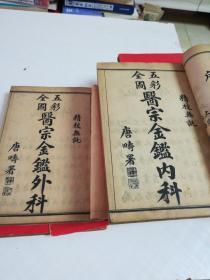 五彩
全圖
醫宗金鑑內科
精校無訛
唐疇署
五彩
全圖
醫宗金鑑外科
精校無訛
唐疇署